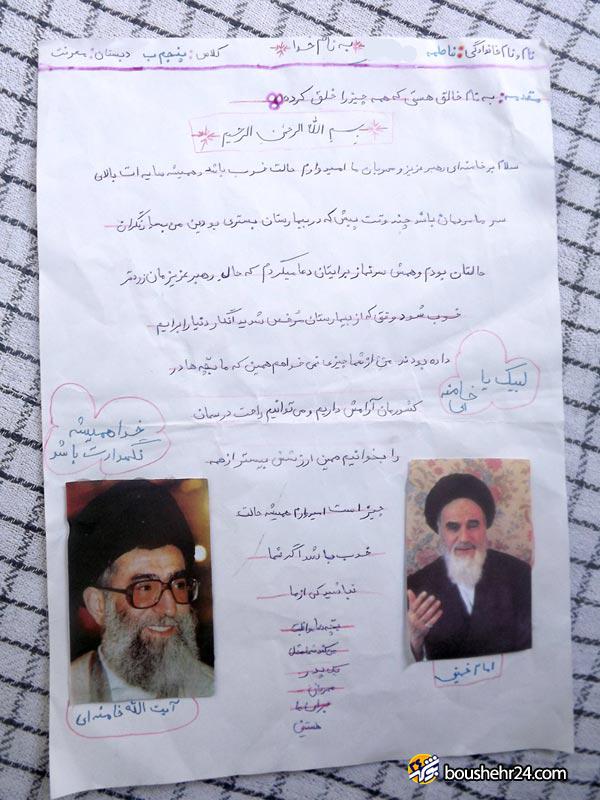 نام و نام خانوادگی: فاطمه
به نام خدا
کلاس: پنجم ب دبستان: معرفت
مقدمه: به نام خالق هستی که همه چیز را خلق کرده
بسم الله الرحمن الرحیم
سلام بر خامنه ای رهبر عزیز و مهربان ما امیدوارم حالت خوب باشد و همیشه سایه ات بالای
سر ما مردمان باشد چند وقت پیش که در بیمارستان بستری بودین من نگران
حالتان بودم و همش سر نماز برایتان دعا میکردم که حال رهبر عزیزمان زودتر
خوب شود وقتی که از بیمارستان مرخص شدید انگار دنیا را برایم
داده بودند من از شما چیزی نمی خواهم همین که ما بچه ها در
کشورمان آرامش داریم و می توانیم راحت درسمان
را بخوانیم همین ارزشش بیشتر از همه
چیز است امیدوارم همیشه حالت
خوب باشد اگر شما
نباشید کی از ما
بچه ها مواظبت
می کند شما مثل
یک پدر
مهربان
برای ما
هستین
لبیک یا
خامنه
ای
خدا همیشه
نگهدارت باشد
امام خمینی
آیت الله خامنه ای
boushehr24.com